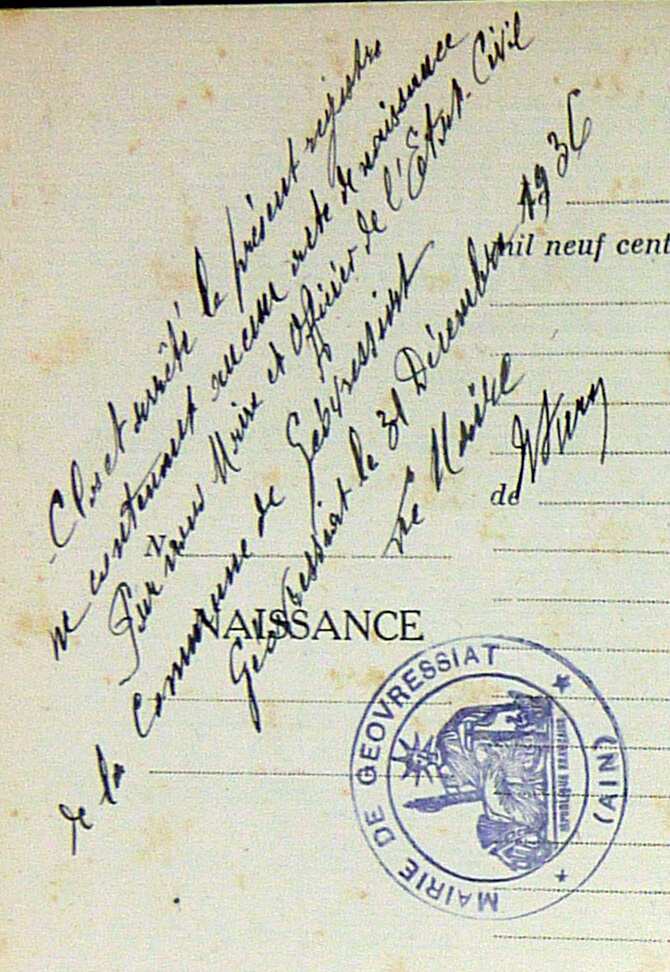 Clos et arrêté le présent registre
ne contenant aucun acte de naissance
Par nous Maire et Officier de l'Etat-Civil
de la Commune de Géovressiat
Géovressiat le 31 Décembre 1936
Le Maire
mil neuf cent
de
N
NAISSANCE
MAIRIE DE GEOVRESSIAT
(AIN)
REPUBLIQUE FRANÇAISE